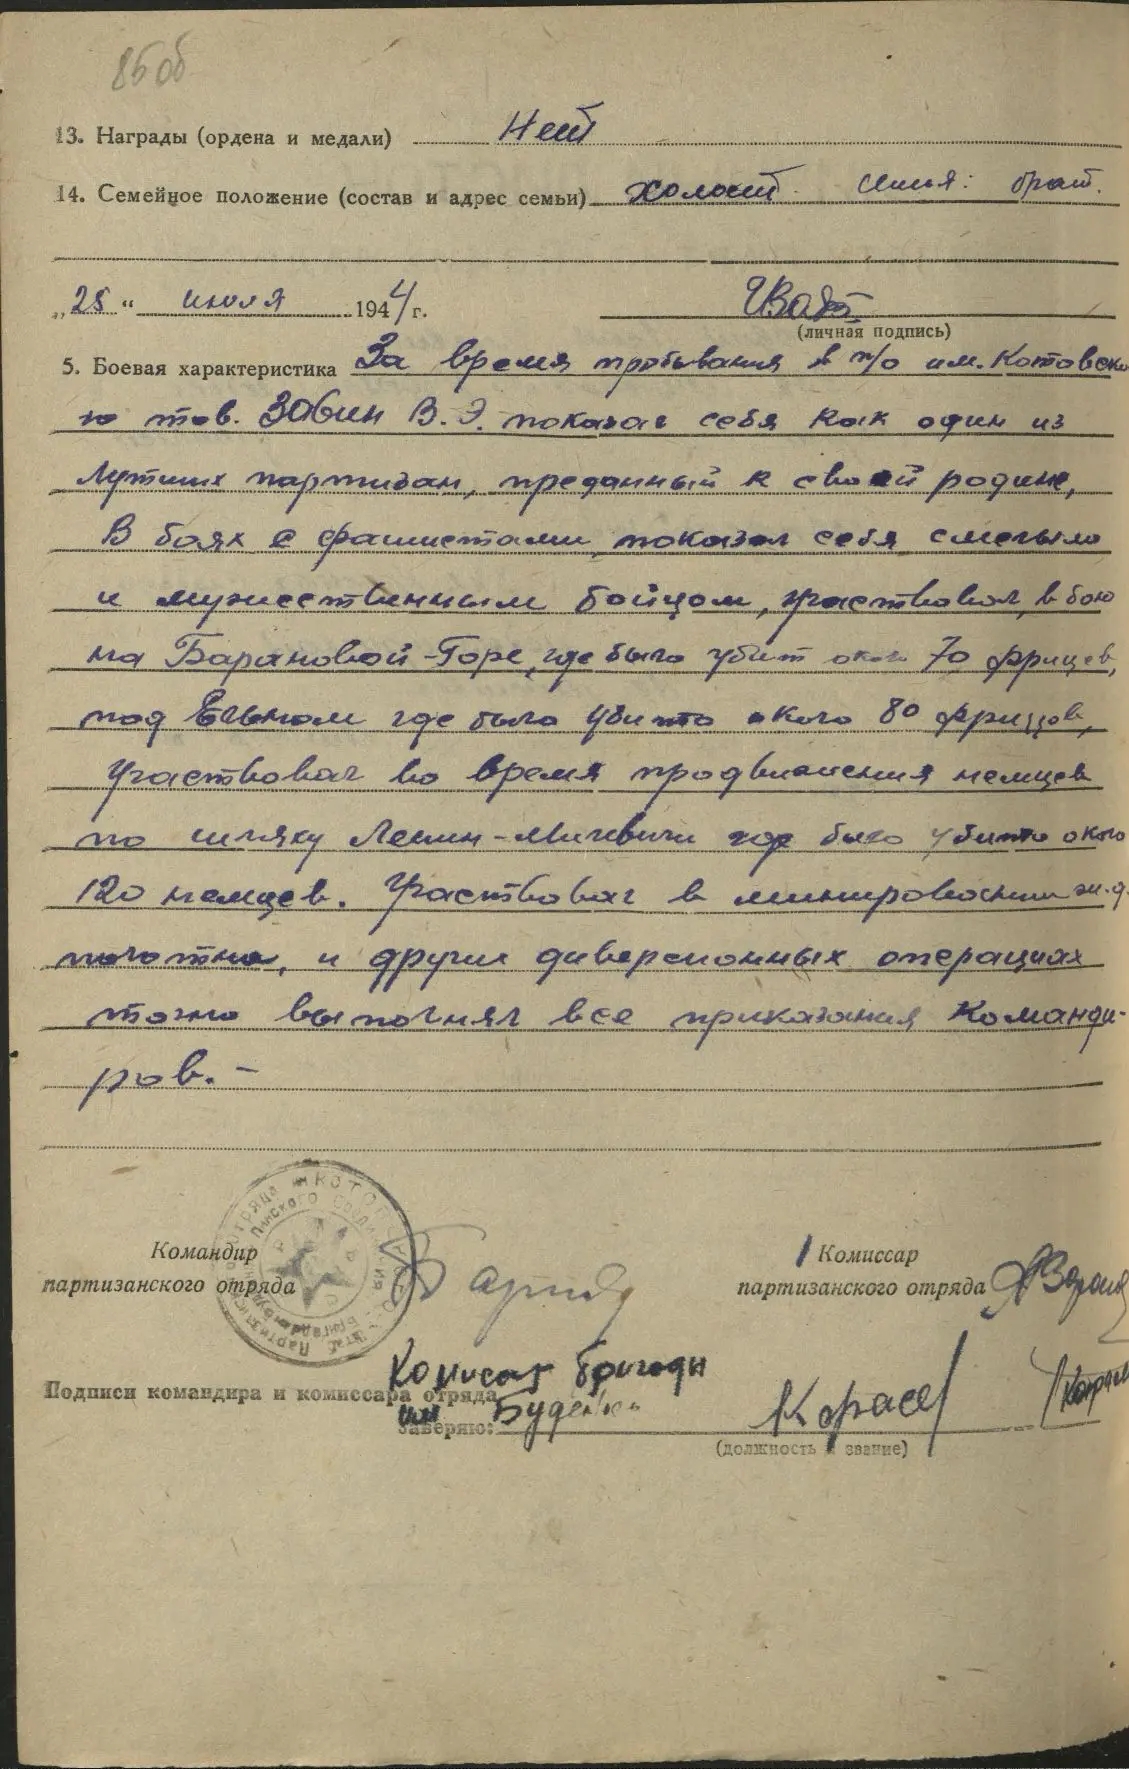 86 об
13. Награды (ордена и медали) Нет
14. Семейное положение (состав и адрес семьи) холост. семья: брат.
„25“ июля 1944 г.
(личная подпись)
5. Боевая характеристика За время пробывания в п/о им. Котовско
го тов. Завин В. Э. показал себя как один из
лутших партизан, преданный к своей родине,
В боях с фашистами показал себя смелым
и мужественным бойцом, участвовал, в бою
на Барановой-Горе, где было убит около 70 фрицев,
под где было убито около 80 фрицов,
Участвовал во время продвижения немцев
по шляху Ленин-Микевичи где было убито около
120 немцев. Участвовал в минировании ж.д.
полотна, и других диверсионных операциях
точно выполнял все приказания Команди-
ров. -
Командир
партизанского отряда
Комиссар
партизанского отряда
Комисар бригады
Подписи командира и комиссара отряда
им Буденного
заверяю:
(должность и звание)